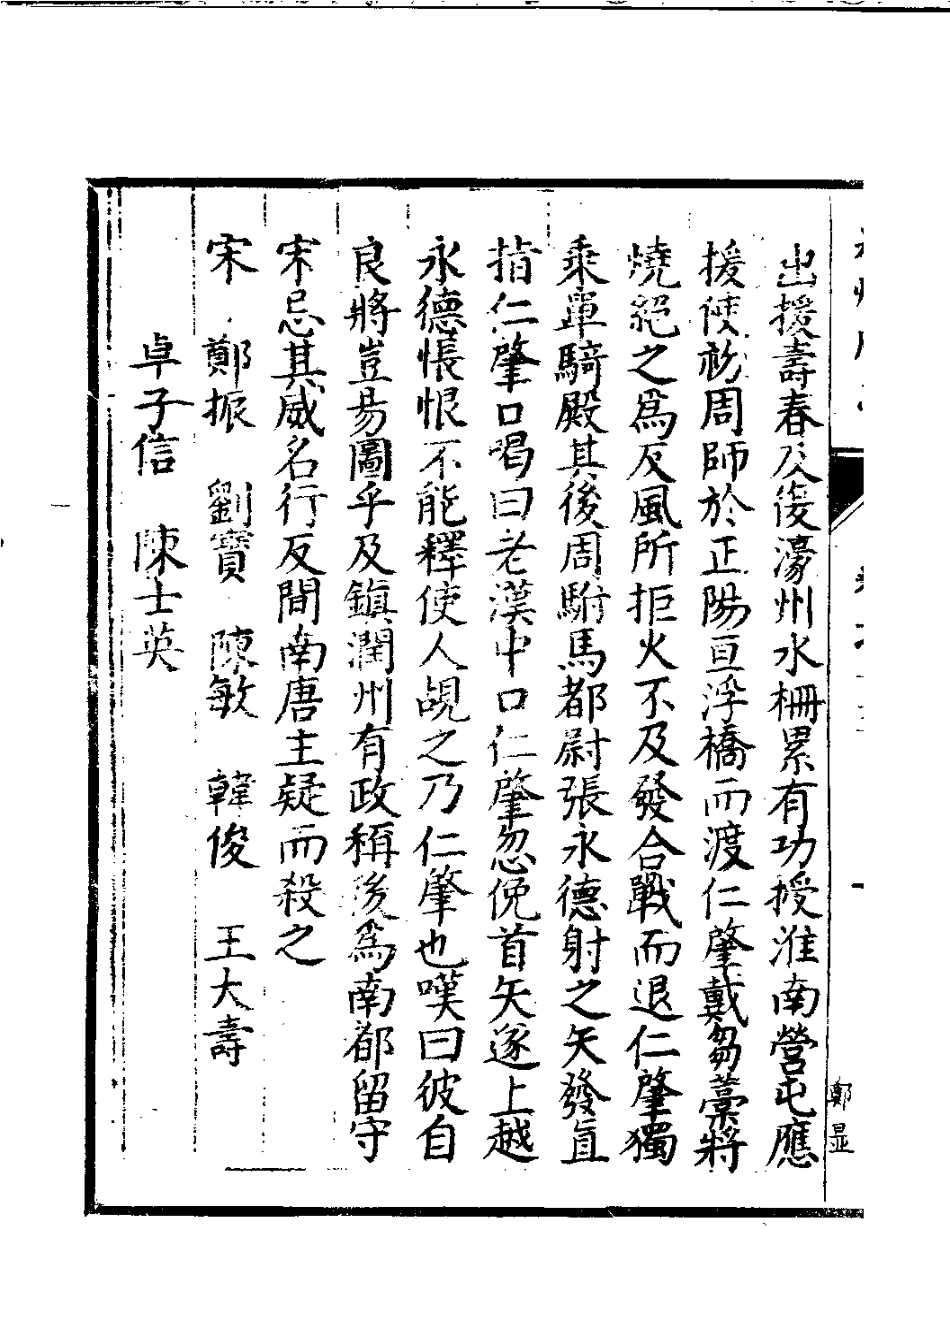 出援壽春及復濠州水柵累有功授淮南營屯應
援使初周師於正陽亘浮橋而渡仁肇戴芻藁將
燒絕之為反風所拒火不及發合戰而退仁肇獨
乘單騎殿其後周駙馬都尉張永德射之矢發直
指仁肇口喝曰老漢中口仁肇忽俛首矢遂上越
永德悵恨不能釋使人覘之乃仁肇也嘆曰彼自
良將豈易圖乎及鎮潤州有政稱後為南都留守
宋忌其威名行反間南唐主疑而殺之
宋 鄭振 劉寶 陳敏 韓俊 王大壽
卓子信 陳士英
鄭显